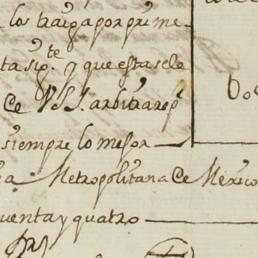 lo traiga por pri me-
ta sig.te y que esta se le
de V.S.Y. arbitrar
siempre lo mejor
a Metropolitana de Mexico
uenta y quatro